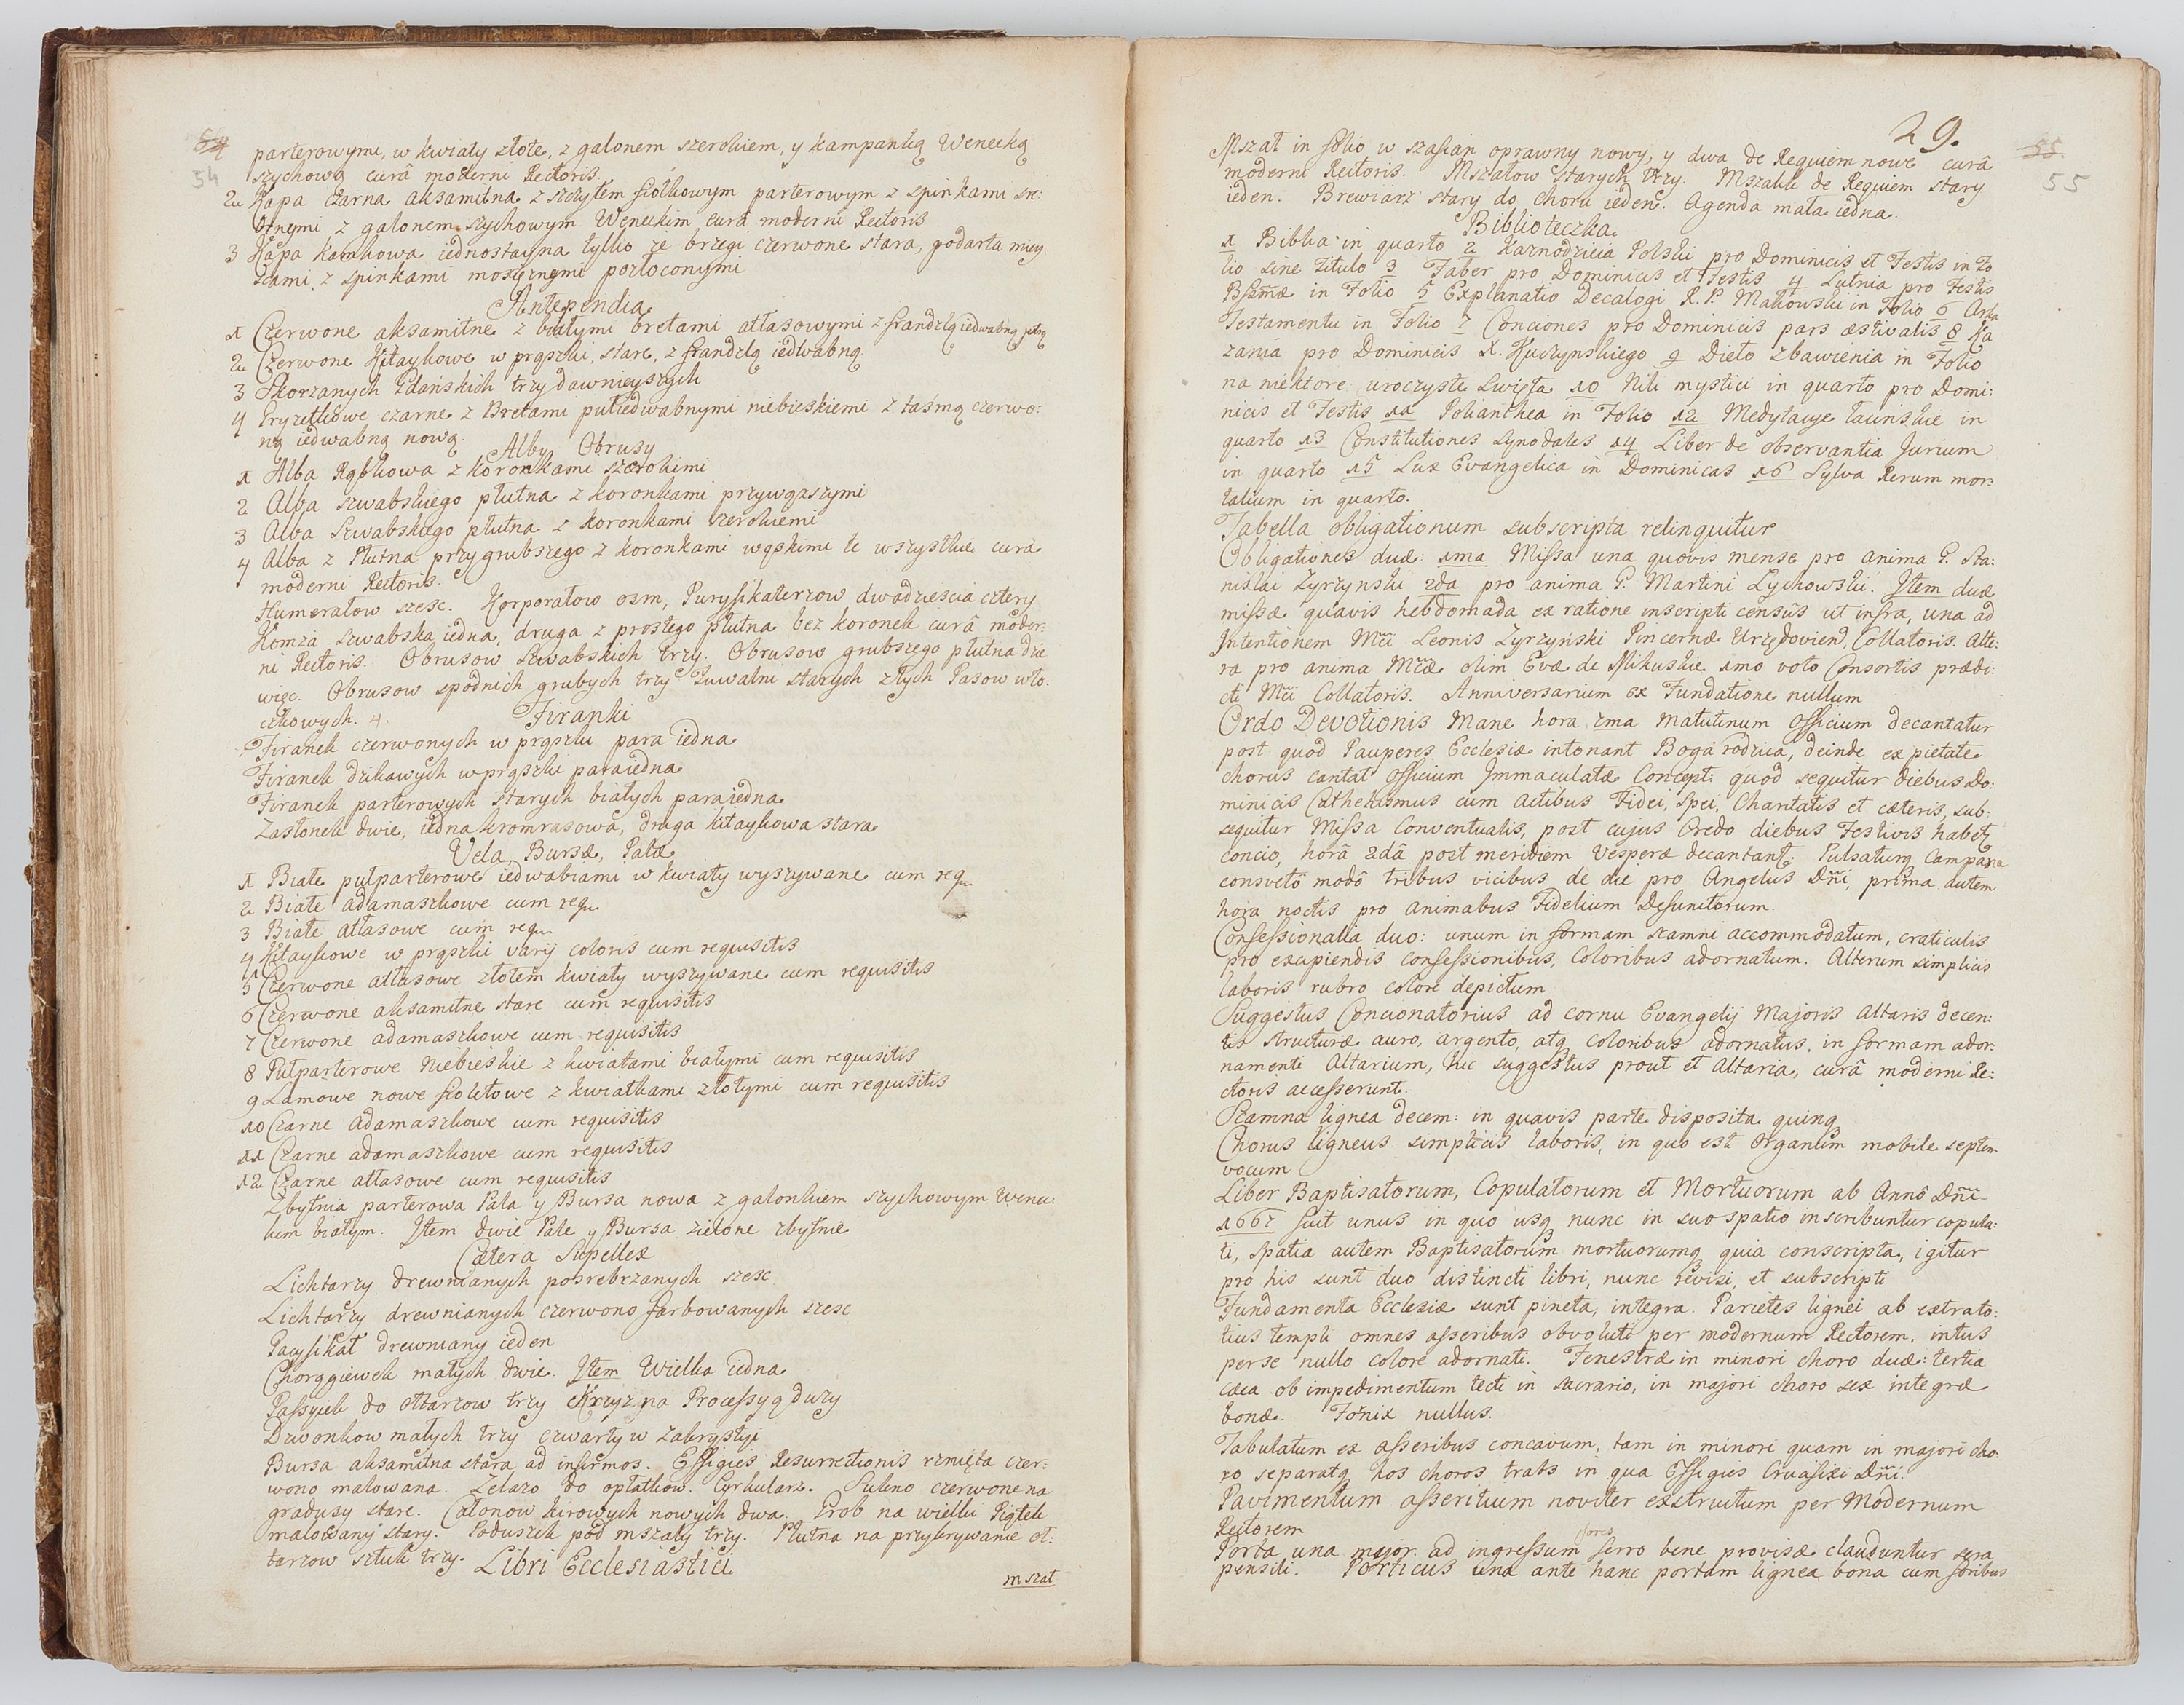 54
54
parterowymi, w kwiaty złote, z galonem szerokiem, y kampanką Wenecką
szychową curâ moderni Rectoris.
2 Kapa czarna aksamitna z szczytem fiołkowym parterowym z spinkami sre:
brnymi z galonem szychowym Weneckim curâ moderni Rectoris
3 Kapa kamkowa iednostayna tylko ze brzegi czerwone stara, podarta miey
scami, z spinkami mosięznymi pozłoconymi
Antependia
1 Czerwone aksamitne z białymi bretami atłasowymi z frandzlą iedwabną
2 Czerwone Kitaykowe w prązki, stare, z frandzlą iedwabną
3 Skorzanych Gdańskich trzy dawnieyszych
4 Gryzetkowe czarne z Bretami pułiedwabnymi niebieskiemi z taśmą czerwo:
ną iedwabną nową.
Alby Obrusy
1 Alba Rąbkowa z koronkami szerokimi
2 Alba szwabskiego płutna z koronkami przywązszymi
3 Alba Szwabskiego płutna z koronkami szerokiemi
4 Alba z Płutna przygrubszego z koronkami wąskimi te wszystkie curâ
moderni Rectoris.
Humerałow szesc. Korporałow osm, Puryfikaterzow dwadziescia cztery
Komza szwabska iedna, druga z prostego płutna bez koronek curâ moder:
ni Rectoris. Obrusow Szwabskich trzy. Obrusow grubszego płutna dzie
więc. Obrusow spodnich grubych trzy Tuwalni starych złych Pasow wło:
czkowych. 4.
Firanki
Firanek czerwonych w prązki para iedna
Firanek dzikawych w prązki para iedna
Firanek parterowych starych białych para iedna
Zasłonek dwie, iedna kromrasowa, druga kitaykowa stara
Vela, Bursæ, Palæ
1 Białe pułparterowe iedwabiami w kwiaty wyszywane cum requ
2 Białe adamaszkowe cum requ
3 Białe atłasowe cum requ
4 Kitaykowe w prązki varij coloris cum requisitis
5 Czerwone atłasowe złotem kwiaty wyszywane cum requisitis
6 Czerwone aksamitne stare cum requisitis
7 Czerwone adamaszkowe cum requisitis
8 Pułparterowe Niebieskie z kwiatami białymi cum requisitis
9 Lamowe nowe fioletowe z kwiatkami złotymi cum requisitis
10 Czarne adamaszkowe cum requisitis
11 Czarne adamaszkowe cum requisitis
12 Czarne atłasowe cum requisitis
Zbytnia parterowa Pala y Bursa nowa z galonkiem szychowym Wenec:
kim białym. Item dwie Pale y Bursa zielone zbytnie
Cætera Supellex
Lichtarzy drewnianych posrebrzanych szesc
Lichtarzy drewnianych czerwono farbowanych szesc
Pacyfikał drewniany ieden
Chorągiewek małych dwie. Item Wielka iedna
Passyiek do ołtarzow trzy Krzyz na Processyą duzy
Dzwonkow małych trzy czwarty w Zakrystyi
Bursa aksamitna stara ad infirmos. Effigies Resurrectionis rznięta czer:
wono malowana. Zelazo do opłatkow. Cyrkularz. Sukno czerwone na
gradusy stare. Całonow kirowych nowych dwa. Grob na wielki Piątek
malowany stary. Poduszek pod mszały trzy. Płutna na przykrywanie oł:
tarzow sztuk trzy.
Libri Ecclesiastici
mszał
29.
55
55
Mszał in folio w szafian oprawny nowy, y dwa de Requiem nowe curâ
moderni Rectoris. Mszałow starych trzy. Mszałek de Requiem stary
ieden. Brewiarz stary do choru ieden. Agenda mała iedna.
Biblioteczka
1 Biblia in quarto 2 Kaznodzieia Polski pro Dominicis et Festis in Fo
lio sine titulo 3 Faber pro Dominicis et Festis 4 Lutnia pro Festis
Bssmæ in Folio 5 Explanatio Decalogi R. P. Makowski in Folio 6 Arka
Testamentu in Folio 7 Conciones pro Dominicis pars æstivalis 8 Ka
zania pro Dominicis X. Kuczynskiego 9 Dieto zbawienia in Folio
na niektore uroczyste Swięta 10 Nili mystici in quarto pro Domi:
nicis et Festis 11 Polianthea in Folio 12 Medytacye łacinskie in
quarto 13 Constitutiones Synodales 14 Liber de observantia Jurium
in quarto 15 Lux Evangelica in Dominicas 16 Sylva Rerum mor:
talium in quarto.
Tabella obligationum subscripta relinquitur
Obligationes duæ: 1ma Missa una quovis mense pro anima G. Sta:
nislai Zyrzynski 2da pro anima G. Martini Lychowski. Item duæ
missæ quavis hebdomada ex ratione inscripti censûs ut infra, una ad
Intentionem Mci Leonis Zyrzyński Pincernæ Urzędovien, Collatoris. Alte:
ra pro anima Mcæ olim Evæ de Mikuskie 1mo voto Consortis prædi:
cti Mci Collatoris. Anniversarium ex Fundatione nullum
Ordo Devotionis Mane hora 7ma Matutinum Officium decantatur
post quod Pauperes Ecclesiæ intonant Boga rodzica, deinde ex pietate
chorus cantat Officium Immaculatæ Concept: quod sequitur diebus Do:
minicis Cathekismus cum Actibus Fidei, Spei, Charitatis et cæteris, sub:
sequitur Missa Conventualis, post cujus Credo diebus Festivis habetz
concio, horâ 2dâ post meridiem Vesperæ decantantz. Pulsaturq Campana
consveto modô tribus vicibus de die pro Angelus Dñi, prima autem
hora noctis pro animabus Fidelium Defunctorum.
Confessionalia duo: unum in formam scamni accommodatum, craticulis
pro excipiendis confessionibus, Coloribus adornatum. Alterum simplicis
laboris rubro colore depictum
Suggestus Concionatorius ad cornu Evangelij Majoris altaris decen:
tis structuræ auro, argento, atq coloribus adornatus, in formam ador:
namenti Altarium, hic suggestus prout et Altaria, curâ moderni Re:
ctoris accesserunt.
Scamna lignea decem: in quavis parte disposita quinq
Chorus ligneus simplicis laboris, in quo est organum mobile septem
vocum
Liber Baptisatorum, Copulatorum et Mortuorum ab Annô Dñi
1667 fuit unus in quo usq nunc in suo spatio inscribuntur copula:
ti, spatia autem Baptisatorum mortuorumq quia conscripta, igitur
pro his sunt duo distincti libri, nunc revisi, et subscripti
Fundamenta Ecclesiæ sunt pineta, integra. Parietes lignei ab extra to:
tius templi omnes asseribus obvoluti per modernum Rectorem, intus
per se nullo colore adornati. Fenestræ in minori choro duæ: tertia
cæca ob impedimentum tecti in sacrario, in majori choro sex integræ
bonæ. Fornix nullus.
Tabulatum ex asseribus concavum, tam in minori quam in majori cho:
ro separatq hos choros trabs in qua Effigies Crucifixi Dñi.
Pavimentum asseritium noviter exstructum per Modernum
Rectorem
fores
Porta una major. ad ingressum ferro bene provisæ clauduntur sera
pensili. Porticus una ante hanc portam lignea bona cum foribus